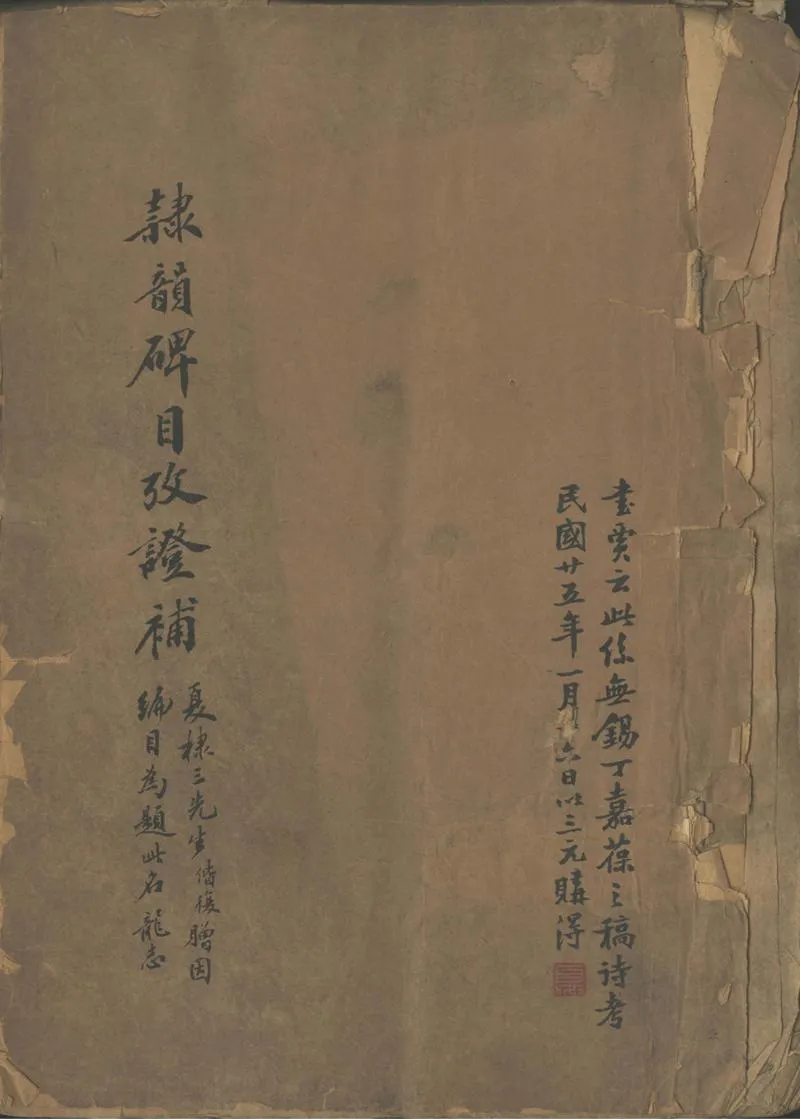 書賈云此係無錫丁嘉葆之稿待考
民國廿五年一月十六日以三元購得
隸韻碑目攷證補
夏棣三先生借後贈因
編目為題此名龍志